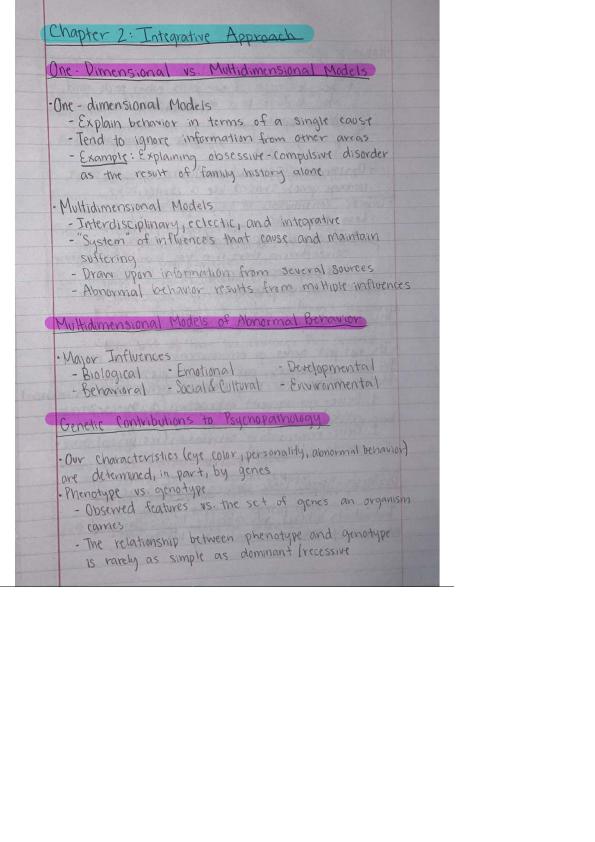 Chapter 2: Integrative Approach
One-Dimensional vs. Multidimensional Models
·One-dimensional Models
- Explain behavior in terms of a single cause
- Tend to ignore information from other areas
- Example: Explaining obsessive-compulsive disorder
as the result of family history alone
· Multidimensional Models
- Interdisciplinary, eclectic, and integrative
- "System" of influences that cause and maintain
suffering
- Draw upon information from several sources
- Abnormal behavior results from multiple influences
Multidimensional Models of Abnormal Behavior
· Major Influences
- Biological - Emotional - Developmental
- Behavioral - Social & Cultural - Environmental
Genetic Contributions to Psychopathology
·Our characteristics (eye color, personality, abnormal behavior)
are determined, in part, by genes
·Phenotype vs. genotype
- Observed features vs. the set of genes an organism
carries
- The relationship between phenotype and genotype
is rarely as simple as dominant/recessive